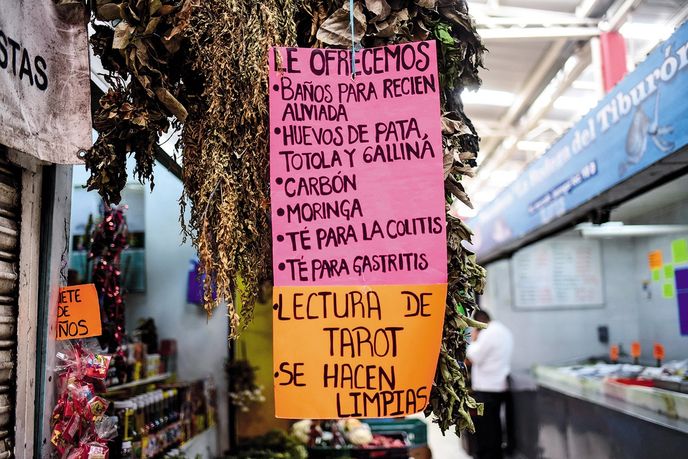 STAS
LE OFRECEMOS
•BAÑOS PARA RECIEN
ALIVIADA
•HUEVOS DE PATA,
TOTOLA Y GALLINA
•CARBÓN
•MORINGA
•TÉ PARA LA COLITIS
•TÉ PARA GASTRITIS
•LECTURA DE
TAROT
•SE HACEN
LIMPIAS
UETE
DE
ÑOS
del Tiburón